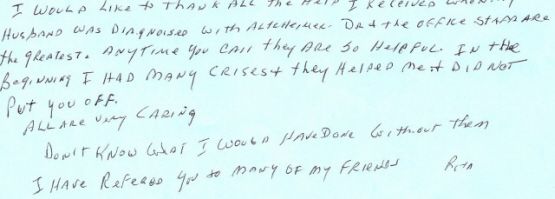 I WOULD LIKE to THANK ALL the HELP I RECEIVED WHEN MY
HUSBAND WAS DIAGNOISED WITH ALTZHEIMER. DR & THE OFFICE STAFF ARE
the GREATEST. ANYTIME YOU CALL they ARE SO HELPFUL. IN the
BEGINNING I HAD MANY CRISES & they HELPED ME & DID NOT
PUT YOU OFF.
ALL ARE VERY CARING
DON'T KNOW WHAT I WOULD HAVE DONE WITHOUT them
I HAVE REFERED YOU to MANY OF MY FRIENDS RITA